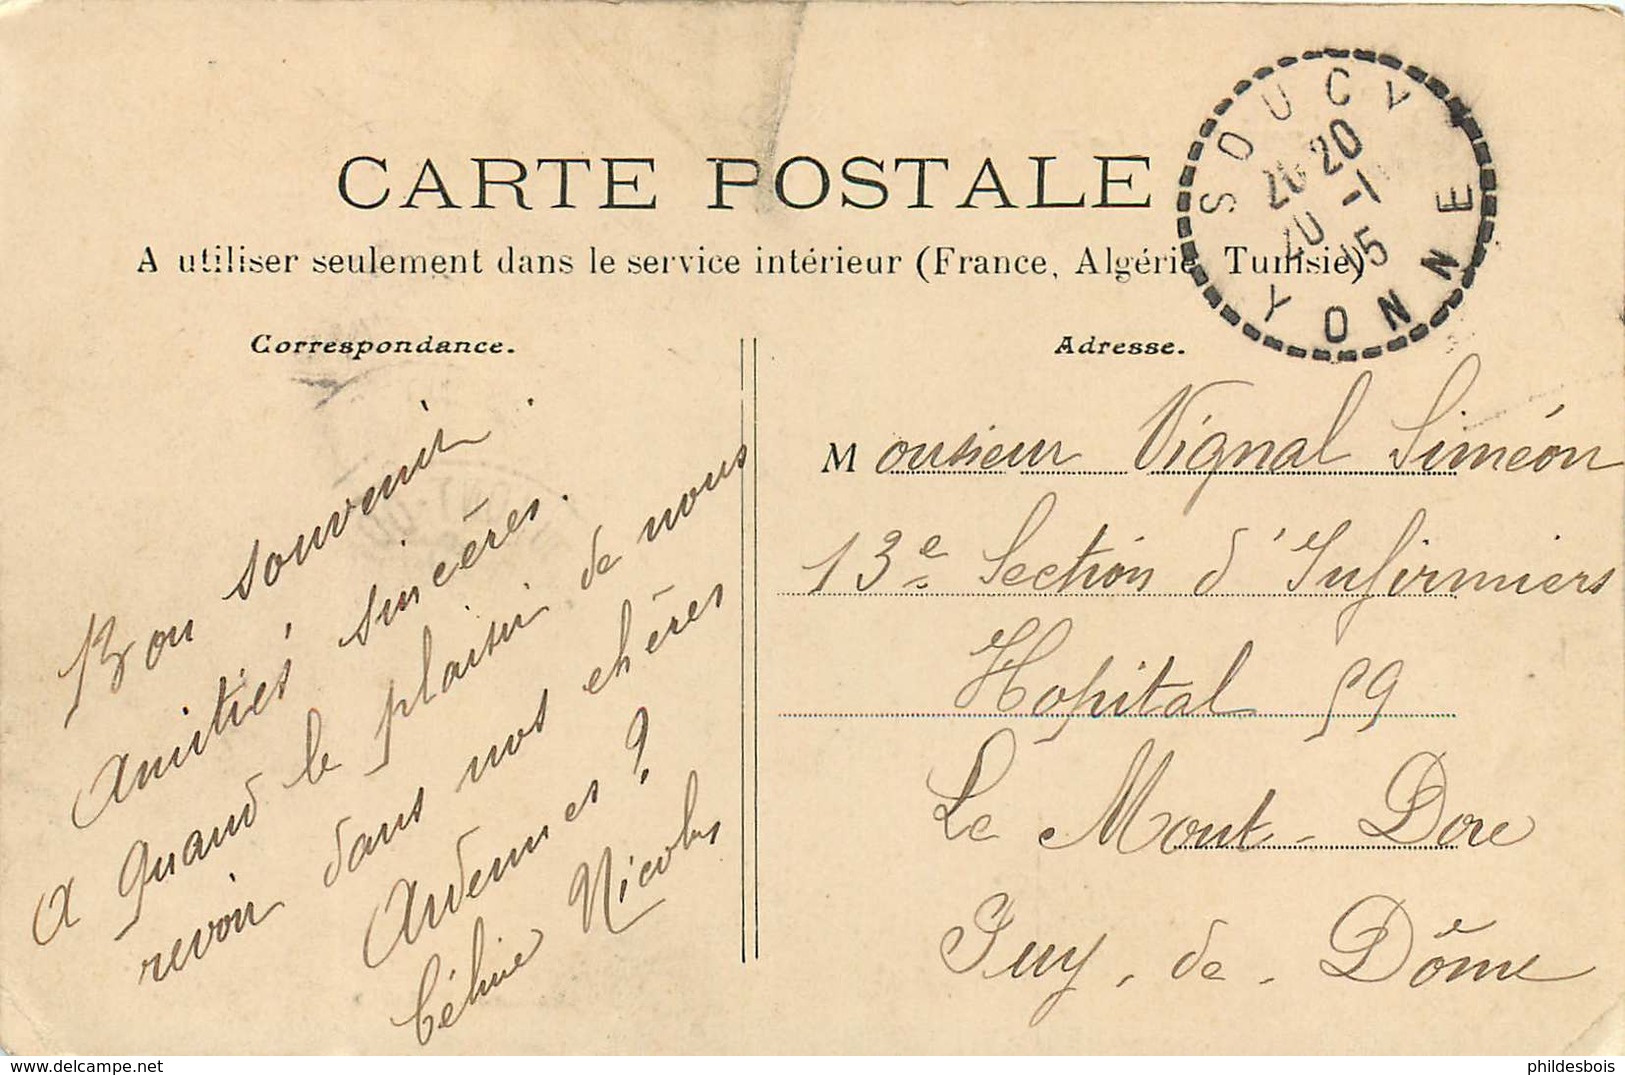 CARTE POSTALE
A utiliser seulement dans le service intérieur (France, Algérie, Tunisie)
SOUCY
20
20
YONNE
Correspondance.
Bon souvenir.
Amitiés sincères.
A quand le plaisir de nous
revoir dans nos chères
Ardennes ?
Céline Nicolas
Adresse.
Monsieur Vignal Siméon
13e Section d'Infirmiers
Hopital 59
Le Mont-Dore
Puy-de-Dôme
delcampe.net
phildesbois